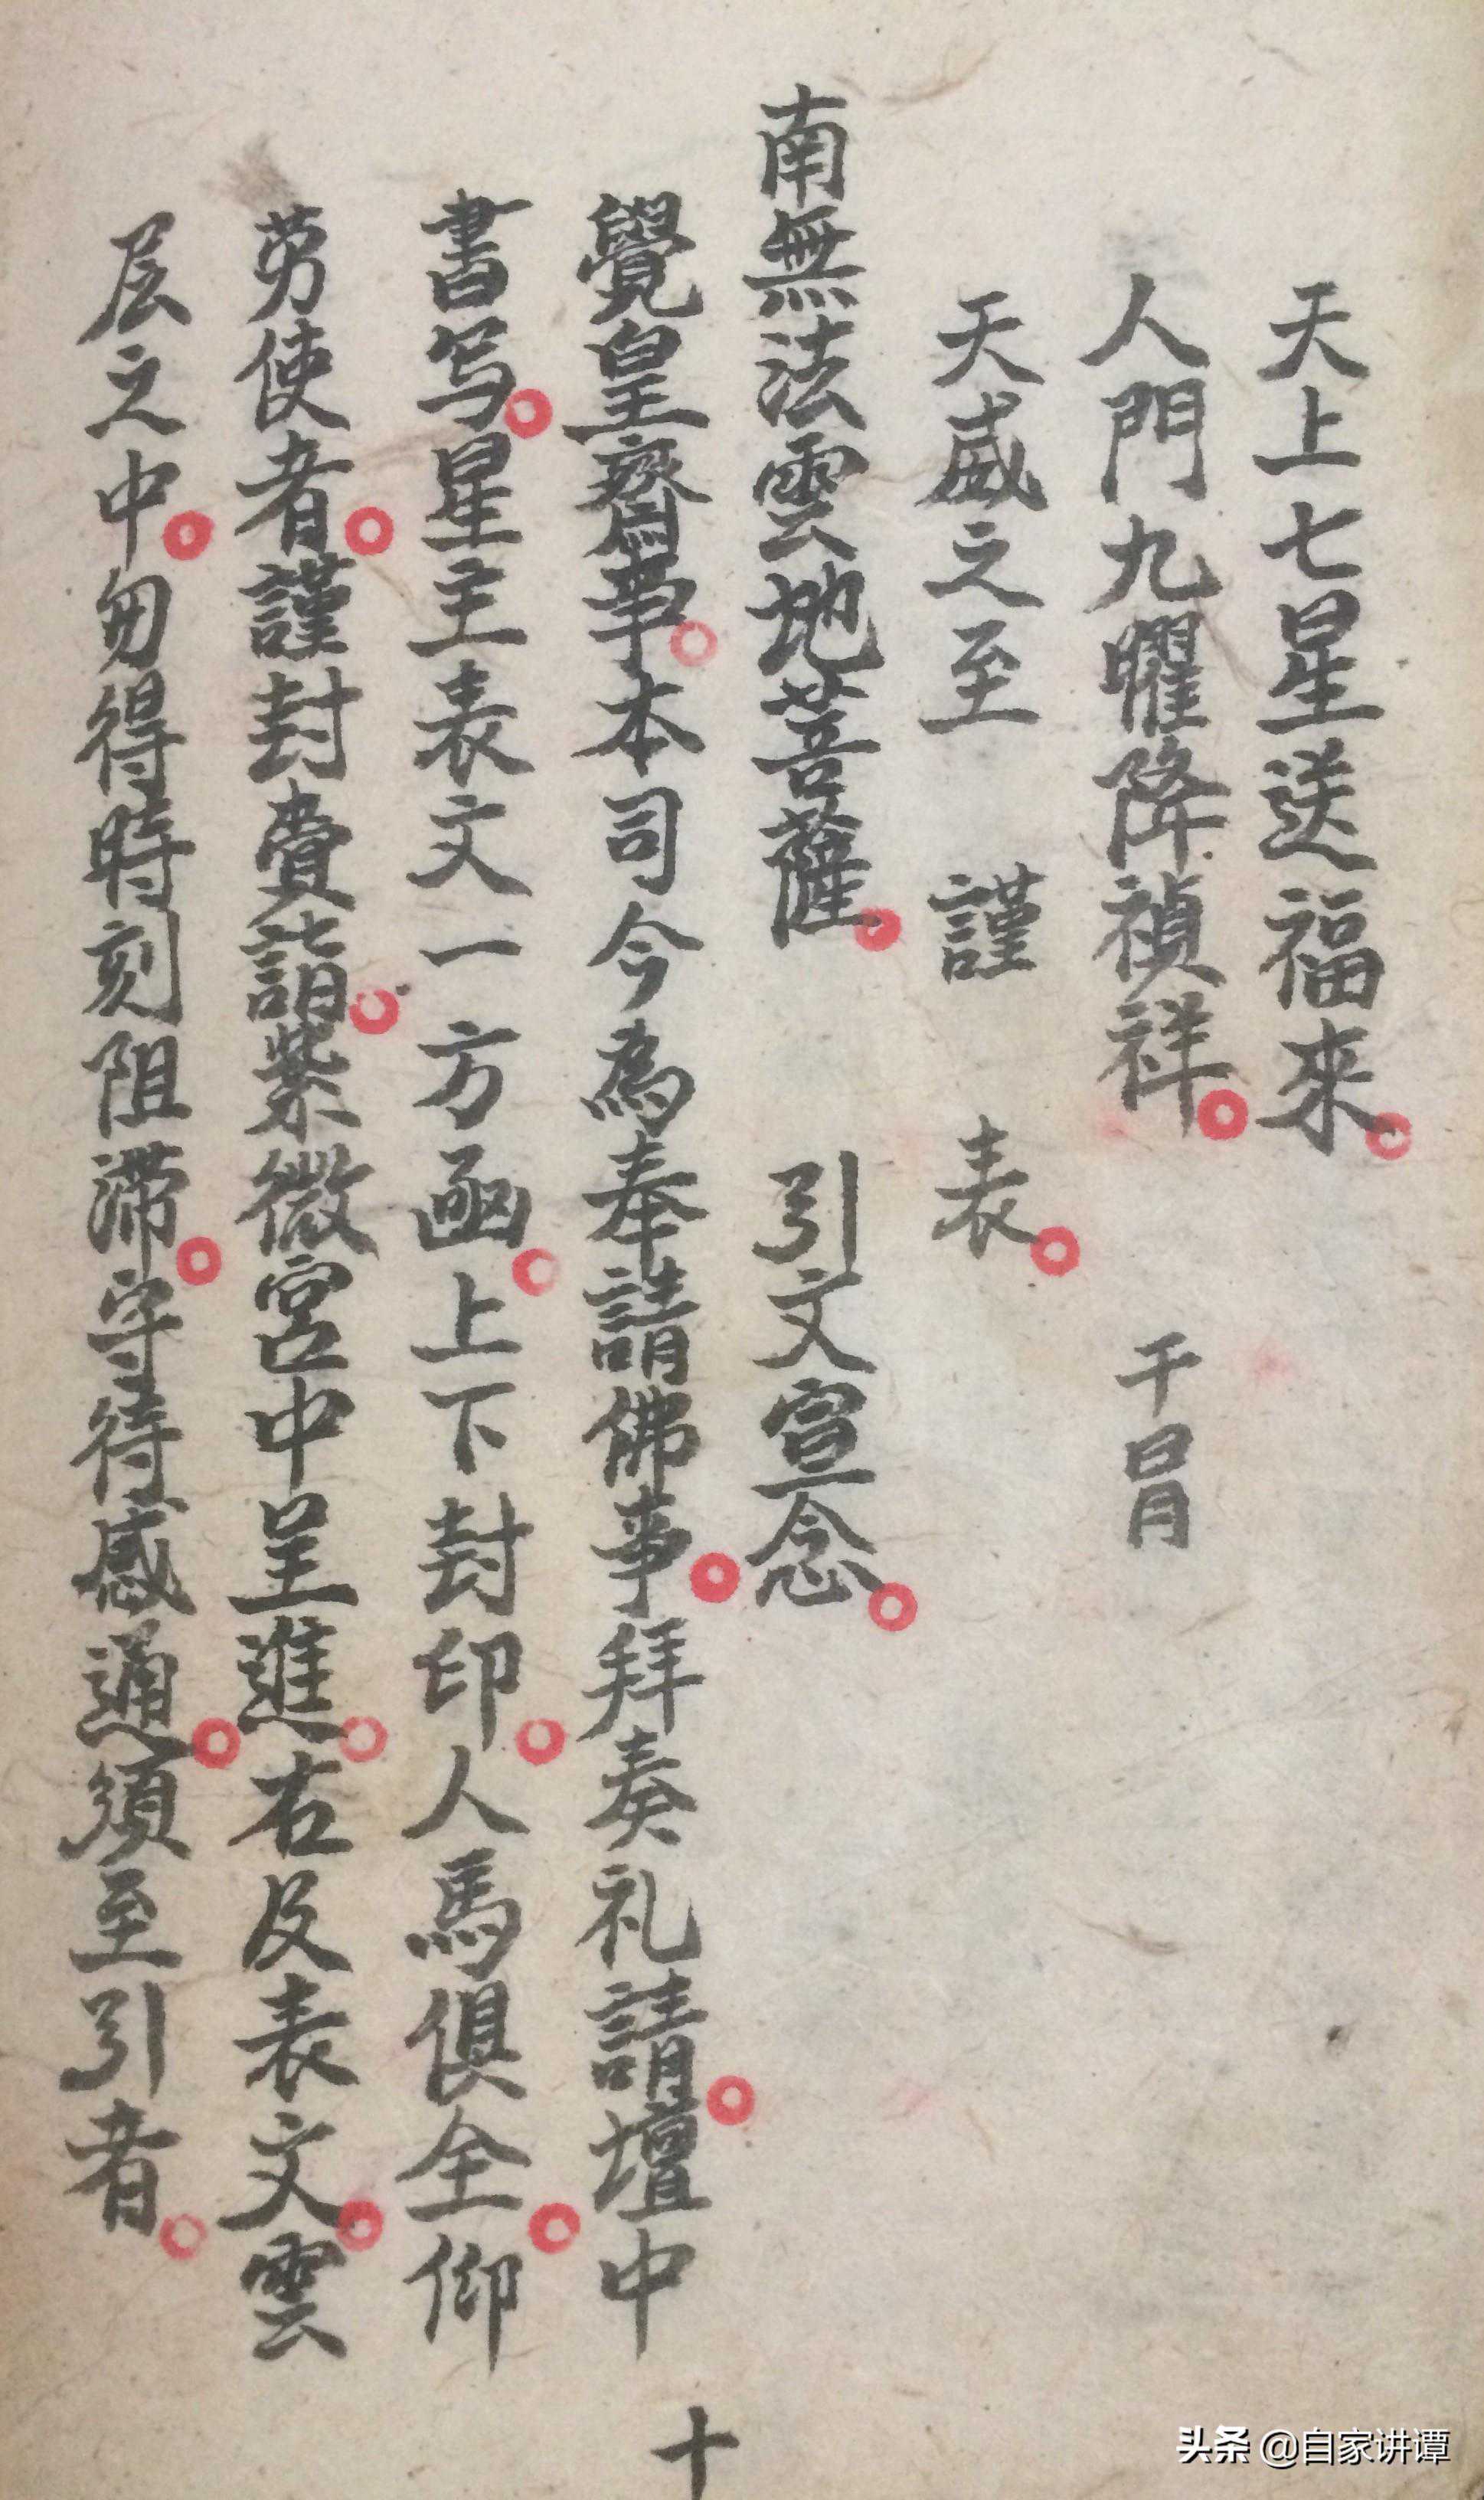 天上七星送福來
人門九曜降禎祥
天威之至 謹 表
南無法雲地菩薩 引文宣念
覺皇齋事本司今為奉請佛事拜奏礼請壇中
書写星主表文一方函上下封印人馬俱全仰
劳使者謹封賫詣紫微宮中呈進右及表文雲
层之中勿得時刻阻滯守待感通須至引者
十
头条 @自家讲谭